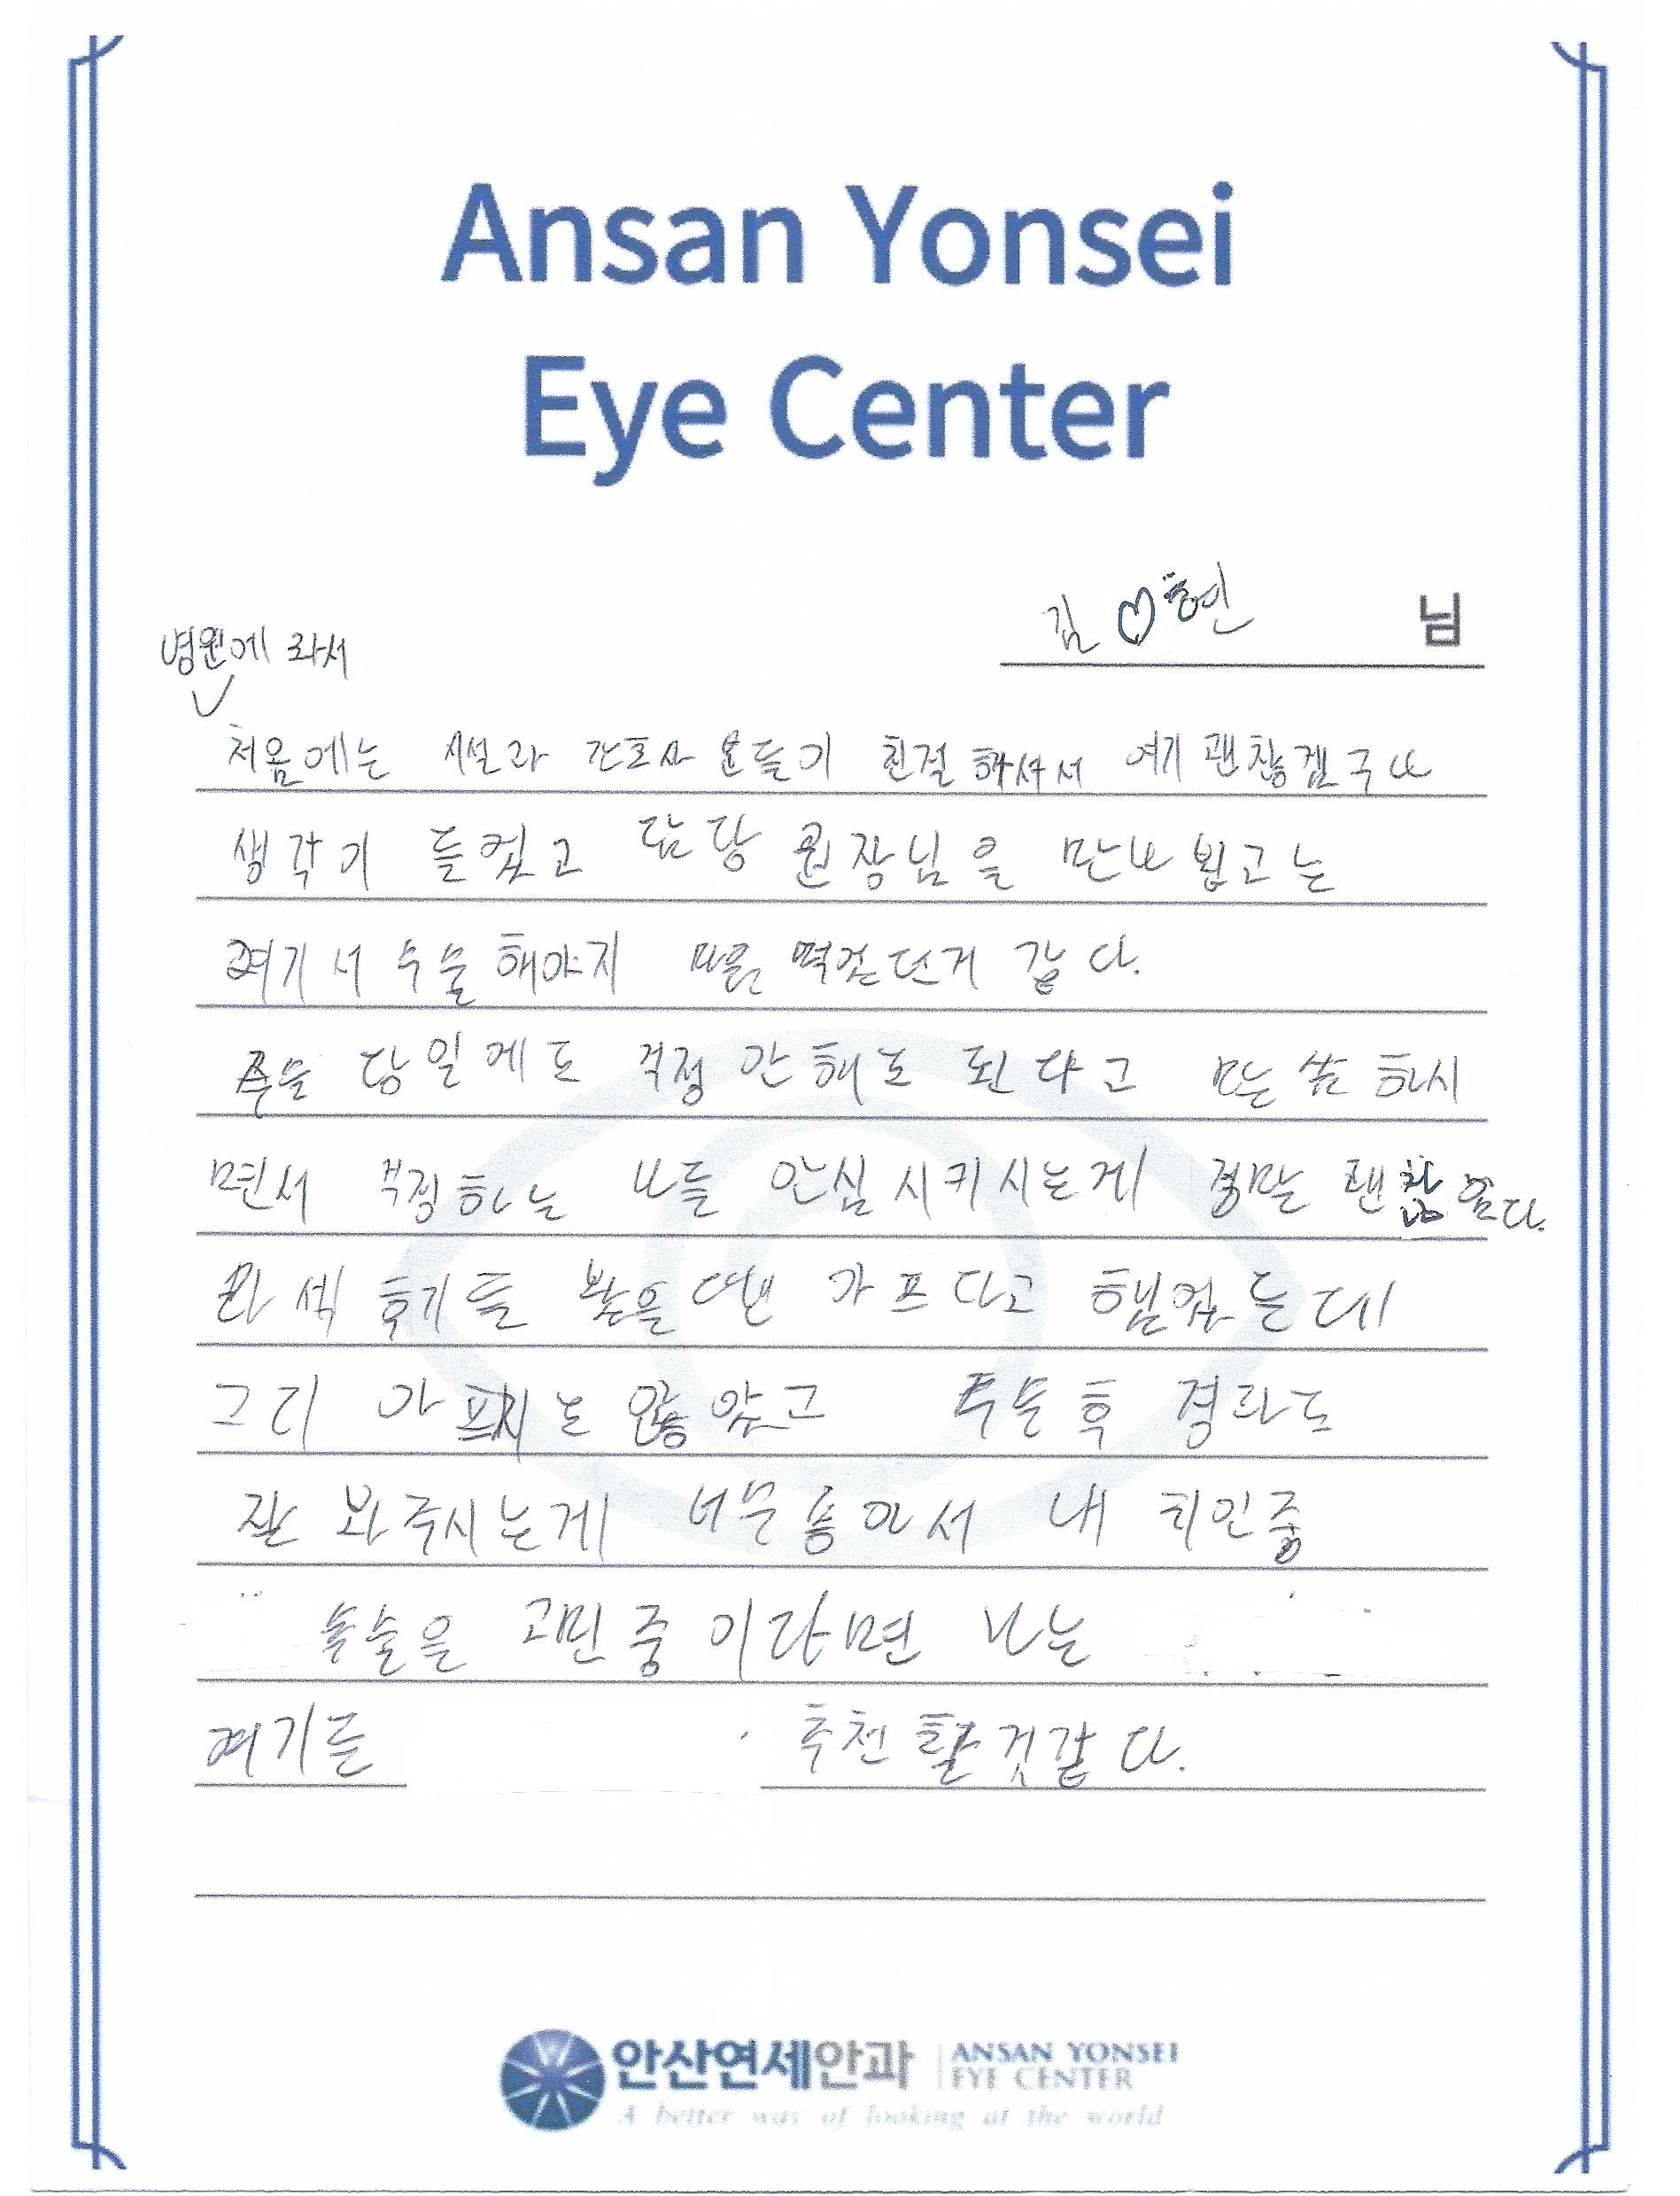 Ansan Yonsei
Eye Center
김 ♡현 님
병원에 와서
처음에는 시설과 간호사 분들이 친절 하셔서 여기 괜찮겠구나
생각이 들었고 담당 원장님을 만나뵙고는
여기서 수술해야지 마음 먹었던거 같다.
수술 당일에도 걱정 안해도 된다고 말씀하시
면서 걱정하는 나를 안심시키시는게 정말 괜찮았다.
라섹 후기들 봤을 땐 아프다고 했었는데
그리 아프지는 않았고 수술후 경과도
잘 봐주시는게 너무 좋아서 내 지인중
수술을 고민중이라면 나는
여기를 추천할것같다.
안산연세안과 ANSAN YONSEI
EYE CENTER
A better way of looking at the world